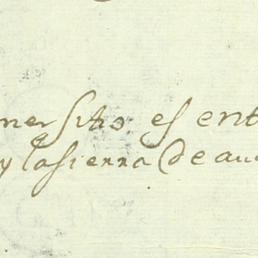 ner sitio es ent
y la sierra de au